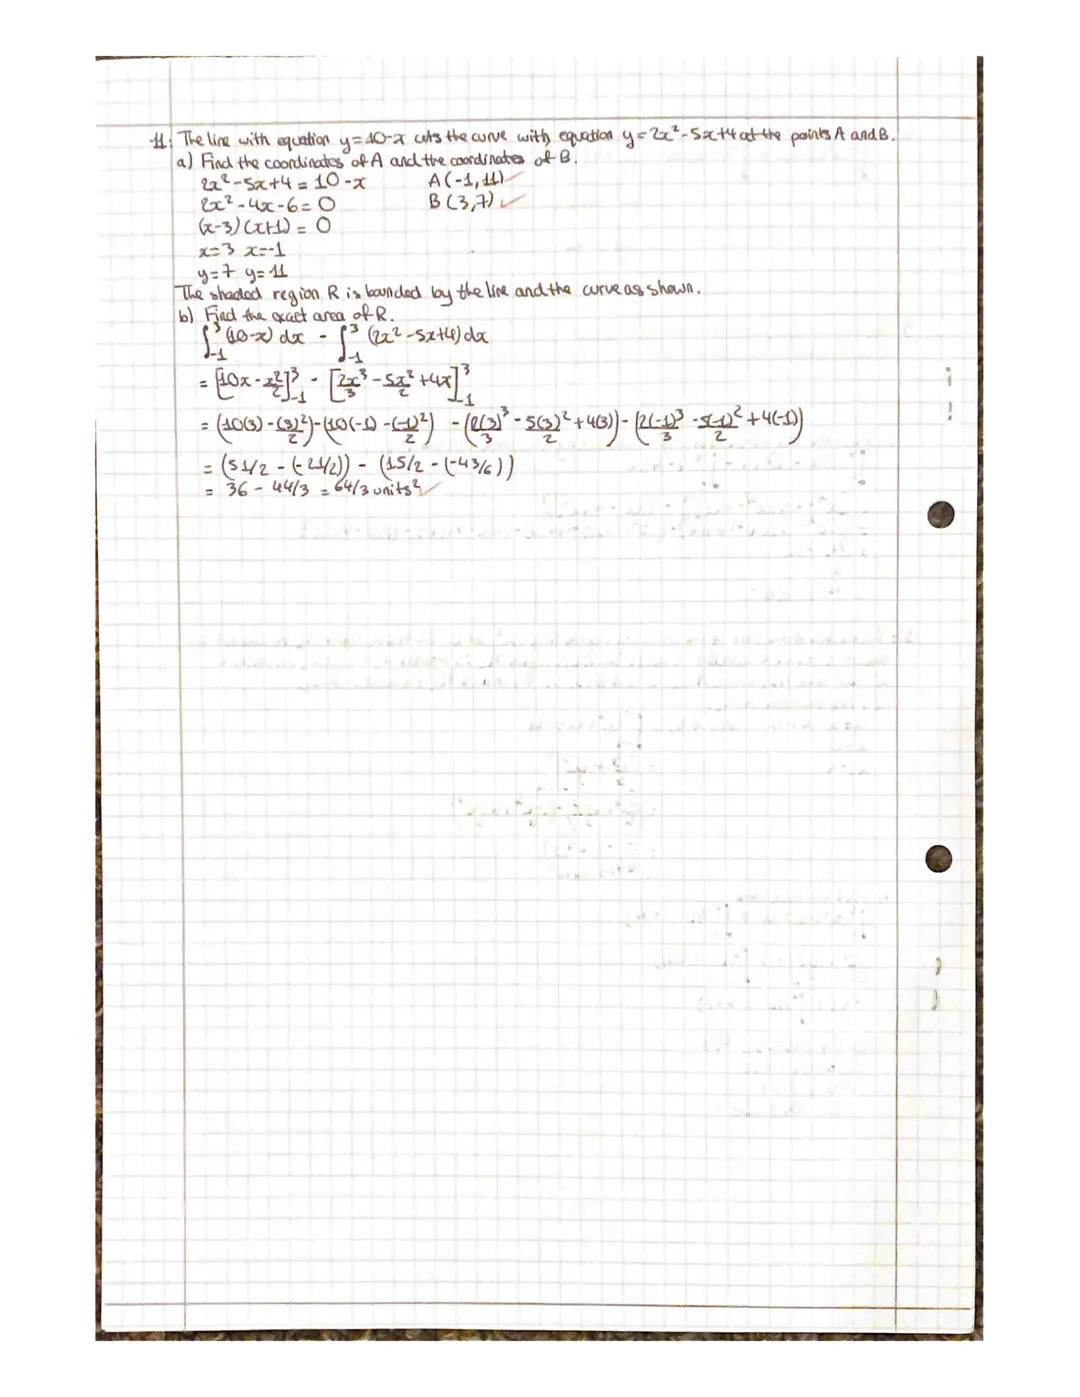 11. The line with equation y=10-x cuts the curve with equation y=2x²-5x+4 at the points A and B.
a) Find the coordinates of A and the coordinates of B.
2x²-5x+4=10-x A(-1,11) ✓
2x²-4x-6=0 B(3,7) ✓
(x-3)(x+1)=0
x=3 x=-1
y=7 y=11
The shaded region R is bounded by the line and the curve as shown.
b) Find the exact area of R.
∫₋₁³ (10-x) dx - ∫₋₁³ (2x²-5x+4) dx
= [10x - x²/2]₋₁³ - [2x³/3 - 5x²/2 + 4x]₋₁³
= (10(3) - (3)²/2) - (10(-1) - (-1)²/2) - (2(3)³/3 - 5(3)²/2 + 4(3)) - (2(-1)³/3 - 5(-1)²/2 + 4(-1))
= (51/2 - (-21/2)) - (15/2 - (-43/6))
= 36 - 44/3 = 64/3 units² ✓